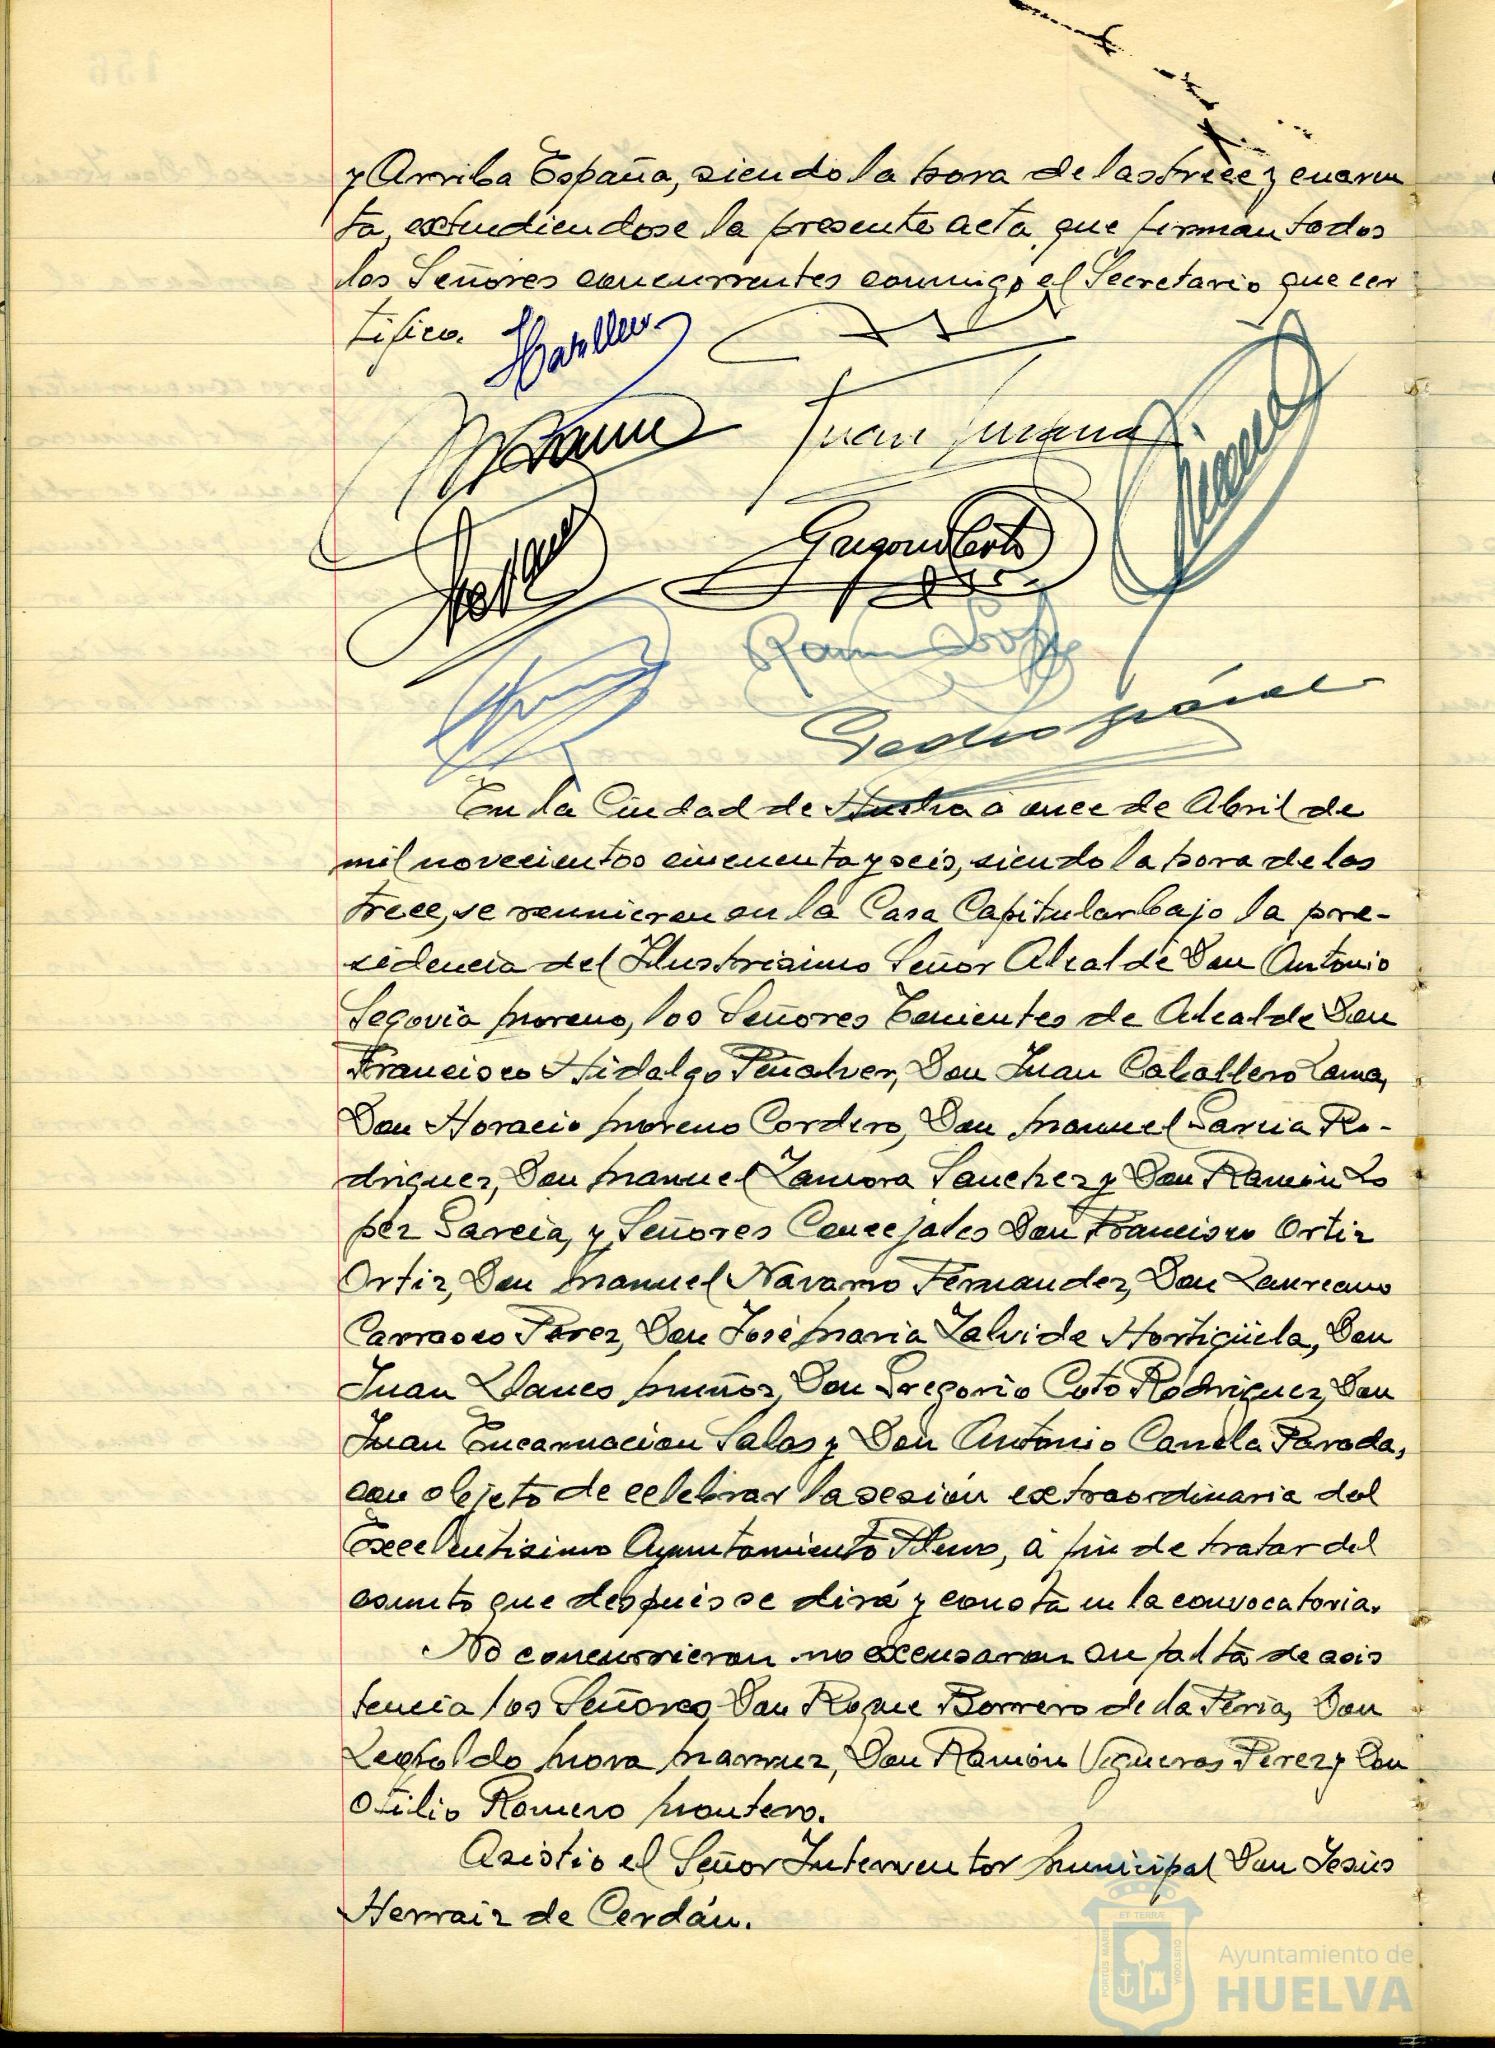 y Arriba España, siendo la hora de las trece y cuaren
ta, extendiendose la presente acta que firman todos
los Señores concurrentes conmigo el Secretario que cer
tifico.
Juan
Gregorio Coto
Ramon López
Pedro
En la Ciudad de Huelva a once de Abril de
mil novecientos cincuenta y seis, siendo la hora de las
trece, se reunieron en la Casa Capitular bajo la pre-
sidencia del Ilustrisimo Señor Alcalde Don Antonio
Segovia Moreno, los Señores Tenientes de Alcalde Don
Francisco Hidalgo Peñalver, Don Juan Caballero Lama,
Don Horacio Moreno Cordero, Don Manuel Garcia Ro-
driguez, Don Manuel Zamora Sanchez y Don Ramón Lo
pez Garcia, y Señores Concejales Don Francisco Ortiz
Ortiz, Don Manuel Navarro Fernandez, Don Laureano
Carrasco Perez, Don José Maria Zalvide Hortigüela, Don
Juan Llanes Muñoz, Don Gregorio Coto Rodriguez, Don
Juan Encarnacion Salas y Don Antonio Canela Parada,
con objeto de celebrar la sesión extraordinaria del
Excelentisimo Ayuntamiento Pleno, a fin de tratar del
asunto que después se dirá y consta en la convocatoria.
No concurrieron no excusaron su falta de asis
tencia los Señores Don Roque Borrero de la Feria, Don
Leopoldo Mora Don Ramón Vigueras Perez y Don
Otilio Romero Montero.
Asistio el Señor Interventor Municipal Don Jesús
Herraiz de Cerdán.
PORTUS MARIS
ET TERRÆ
CUSTODIA
Ayuntamiento de
HUELVA